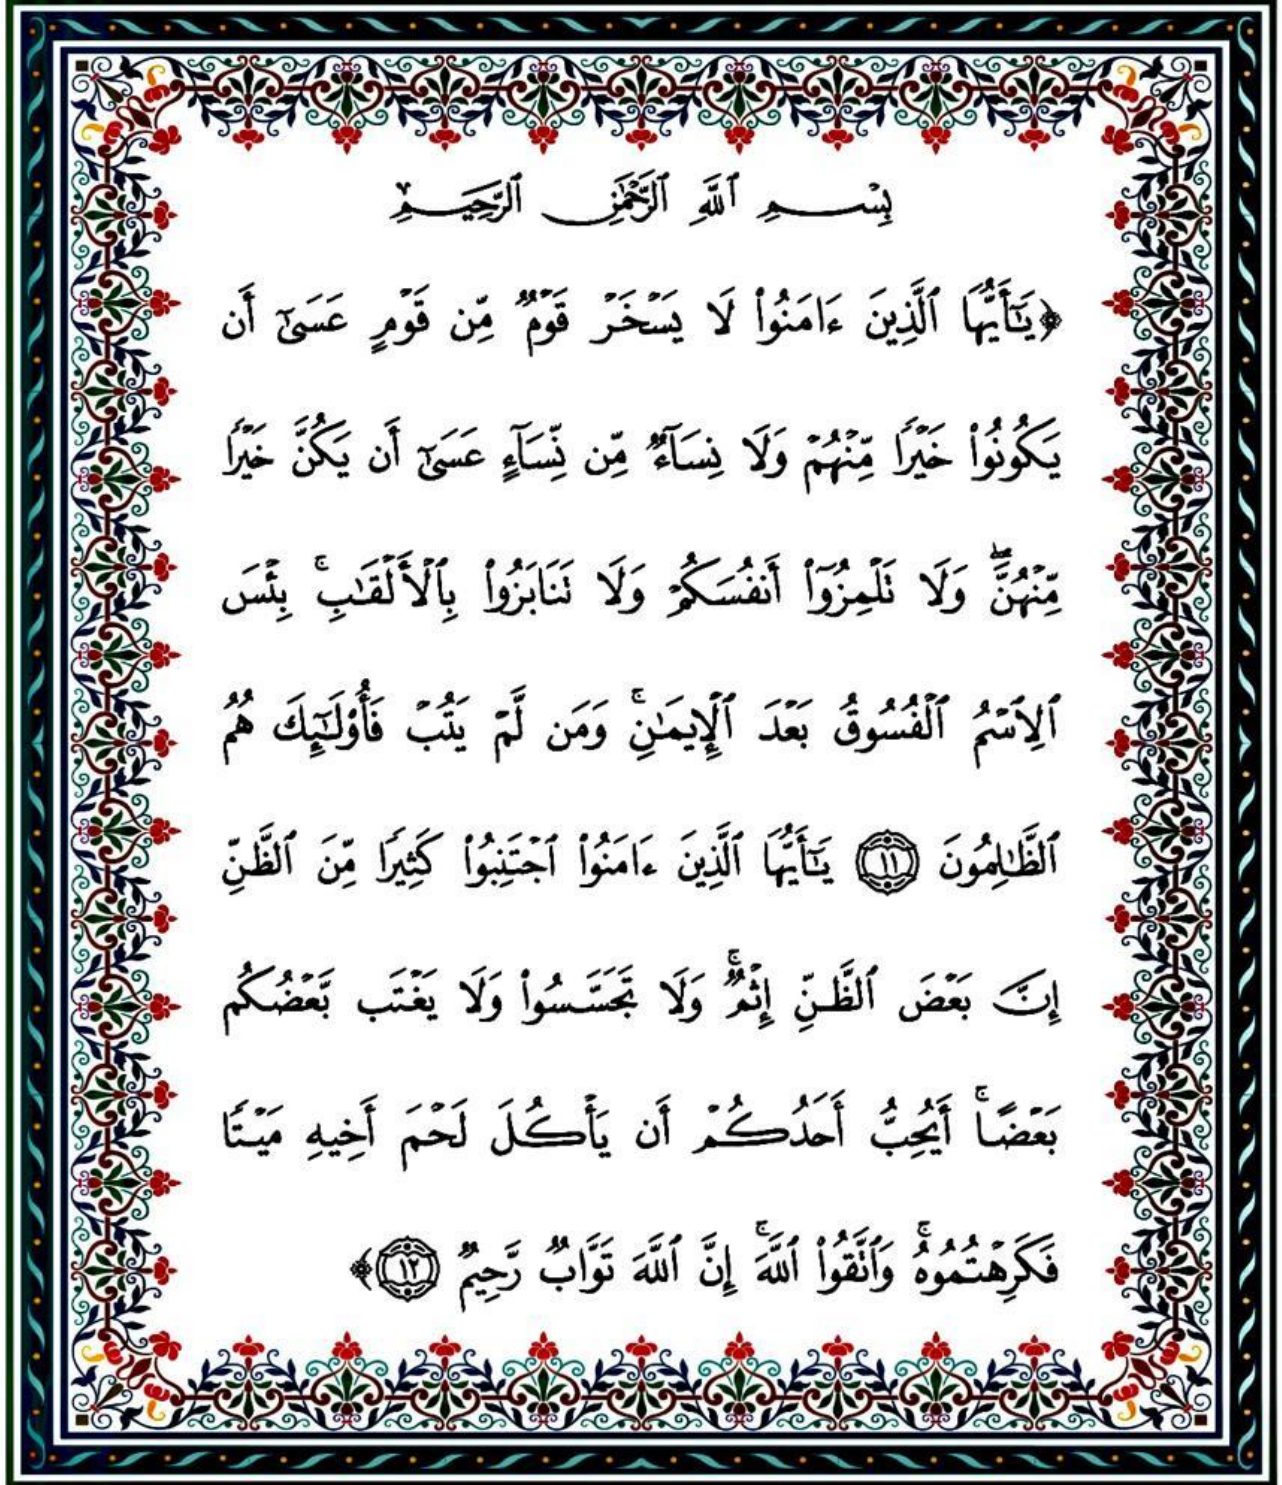 بِسْمِ ٱللَّهِ ٱلرَّحْمَٰنِ ٱلرَّحِيمِ
﴿يَٰٓأَيُّهَا ٱلَّذِينَ ءَامَنُوا۟ لَا يَسْخَرْ قَوْمٌ مِّن قَوْمٍ عَسَىٰٓ أَن
يَكُونُوا۟ خَيْرًا مِّنْهُمْ وَلَا نِسَآءٌ مِّن نِّسَآءٍ عَسَىٰٓ أَن يَكُنَّ خَيْرًا
مِّنْهُنَّ ۖ وَلَا تَلْمِزُوٓا۟ أَنفُسَكُمْ وَلَا تَنَابَزُوا۟ بِٱلْأَلْقَٰبِ ۚ بِئْسَ
ٱلِٱسْمُ ٱلْفُسُوقُ بَعْدَ ٱلْإِيمَٰنِ ۚ وَمَن لَّمْ يَتُبْ فَأُو۟لَٰٓئِكَ هُمُ
ٱلظَّٰلِمُونَ ١١ يَٰٓأَيُّهَا ٱلَّذِينَ ءَامَنُوا۟ ٱجْتَنِبُوا۟ كَثِيرًا مِّنَ ٱلظَّنِّ
إِنَّ بَعْضَ ٱلظَّنِّ إِثْمٌ ۖ وَلَا تَجَسَّسُوا۟ وَلَا يَغْتَب بَّعْضُكُم
بَعْضًا ۚ أَيُحِبُّ أَحَدُكُمْ أَن يَأْكُلَ لَحْمَ أَخِيهِ مَيْتًا
فَكَرِهْتُمُوهُ ۚ وَٱتَّقُوا۟ ٱللَّهَ ۚ إِنَّ ٱللَّهَ تَوَّابٌ رَّحِيمٌ ١٢﴾